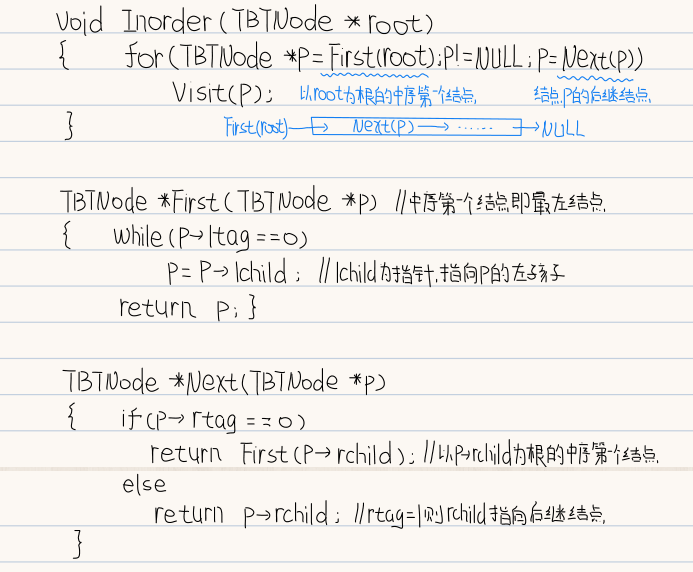 void Inorder(TBTNode *root)
{ for(TBTNode *P=First(root);P!=NULL;P=Next(P))
Visit(P); 以root为根的中序第一个结点 结点P的后继结点
} First(root)→Next(P)→······→NULL
TBTNode *First(TBTNode *p) //中序第一个结点即最左结点
{ while(P→ltag==0)
P=P→lchild; //lchild为指针,指向P的左孩子
return p;}
TBTNode *Next(TBTNode *p)
{ if(P→rtag==0)
return First(P→rchild); //以P→rchild为根的中序第一个结点
else
return p→rchild; //rtag=1则rchild指向后继结点
}